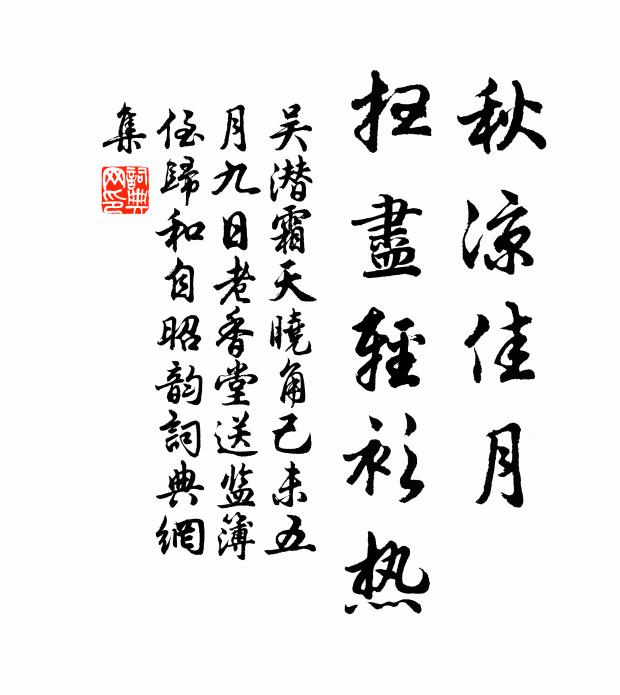 秋凉佳月
扫盡輕衫热
吴潜霜天曉角己未五
月九日老香堂送监簿
侄歸和自昭韵詞典網
集
詞典
网印